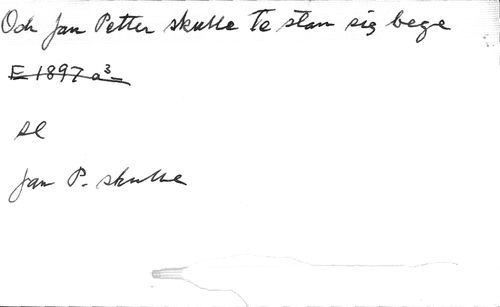 Och Jan Petter skulle Te stan sig bege
E 1897 a³
se
Jan P. skulle